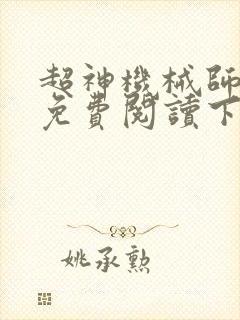 超神機械師
免費閱讀下
姚承勲